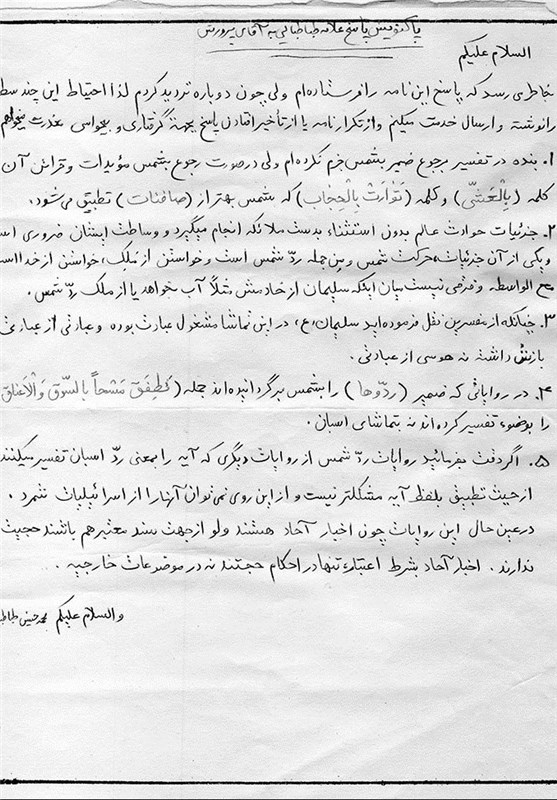 پاکنویس پاسخ علامه طباطبائی به آقای پرورش
السلام علیکم
بخاطری رسد که پاسخ این نامه را فرستاده‌ام ولی چون دوباره تردید کردم لذا احتیاط این چند سطر
را نوشته و ارسال خدمت میکنم و از تکرار نامه یا از تأخیر افتادن پاسخ بجهة گرفتاری و بیحواسی معذرت میخواهم
۱. بنده در تفسیر برجوع ضمیر بشمس جزم نکرده‌ام ولی در صورت رجوع بشمس مؤیدات و قرائن آن
کلمه (بِالْعَشیّ) و کلمه (تَوٰارَتْ بِالْحِجٰابِ) که شمس بهتر از (صافنات) تطبیق می‌شود.
۲. جزئیات حوادث عالم بدون استثناء بدست ملائکه انجام میگیرد و وساطت ایشان ضروری است
و یکی از آن جزئیات، حرکت شمس و من جمله ردّ شمس است و خواستن از مَلِک، خواستن از خدا است
مع الواسطه و فرقی نیست میان اینکه سلیمان از خادمش مثلاً آب بخواهد یا از ملک ردّ شمس.
۳. چنانکه از مفسرین نقل فرموده‌اید سلیمان، ع، در این تماشا مشغول عبادت بوده و عبادتی از عبادتی
بازش داشته نه هوسی از عبادتی.
۴. در روایاتی که ضمیر (ردّوها) را بشمس برگردانیده‌اند جمله (فَطَفِقَ مَسْحاً بِالسّوُقِ وَالْاَعناق
را بوضوء تفسیر کرده‌اند نه بتماشای اسبان.
۵. اگر دقت بفرمائید روایات ردّ شمس از روایات دیگری که آیه را بمعنی ردّ اسبان تفسیر میکنند
از حیث تطبیق بلفظ آیه مشکلتر نیست و از این روی نمی‌توان آنها را از اسرائیلیات شمرد.
در عین حال این روایات چون اخبار آحاد هستند ولو از جهت سند معتبر هم باشند حجیت
ندارند. اخبار آحاد بشرط اعتبار، تنها در احکام حجتند نه در موضوعات خارجیه.
والسلام علیکم محمد حسین طباطبا